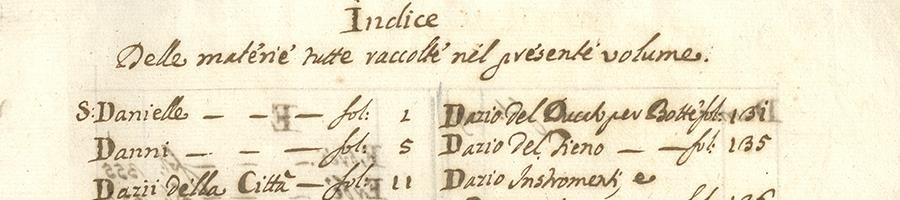 Indice
Delle materie tutte raccolte nel presente volume.
S: Danielle — — — fol: 1
Danni — — — fol: 5
Darii della Città — fol: 11
Dazio del Ducato per Botte fol: 131
Dazio del Fieno — — fol: 135
Dazio Instromenti, e